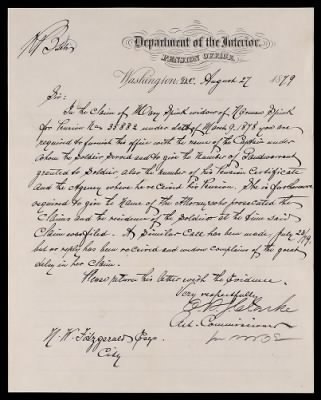 Department of the Interior,
PENSION OFFICE,
Washington, D.C. August 27 1879
Sir:
In the claim of Mary Spink widow of Spink
for Pension No 33882 under Act of March 9, 1878 you are
required to furnish this office with the name of the Captain under
whom the Soldier served and to give the Number of Land warrant
granted to Soldier also the number of his Pension Certificate
and the Agency where he received his Pension. She is furthermore
required to give the Name of the Attorney who prosecuted the
Claims and the residence of the Soldier at the time said
Claim was filed. A Similar Call has been made July 23/79
but no reply has been received and widow complains of the great
delay in her Claim.
Please return this letter with the Evidence.
Very respectfully
Clarke
Act. Commissioner
N. W. Fitzgerald Esqr
City